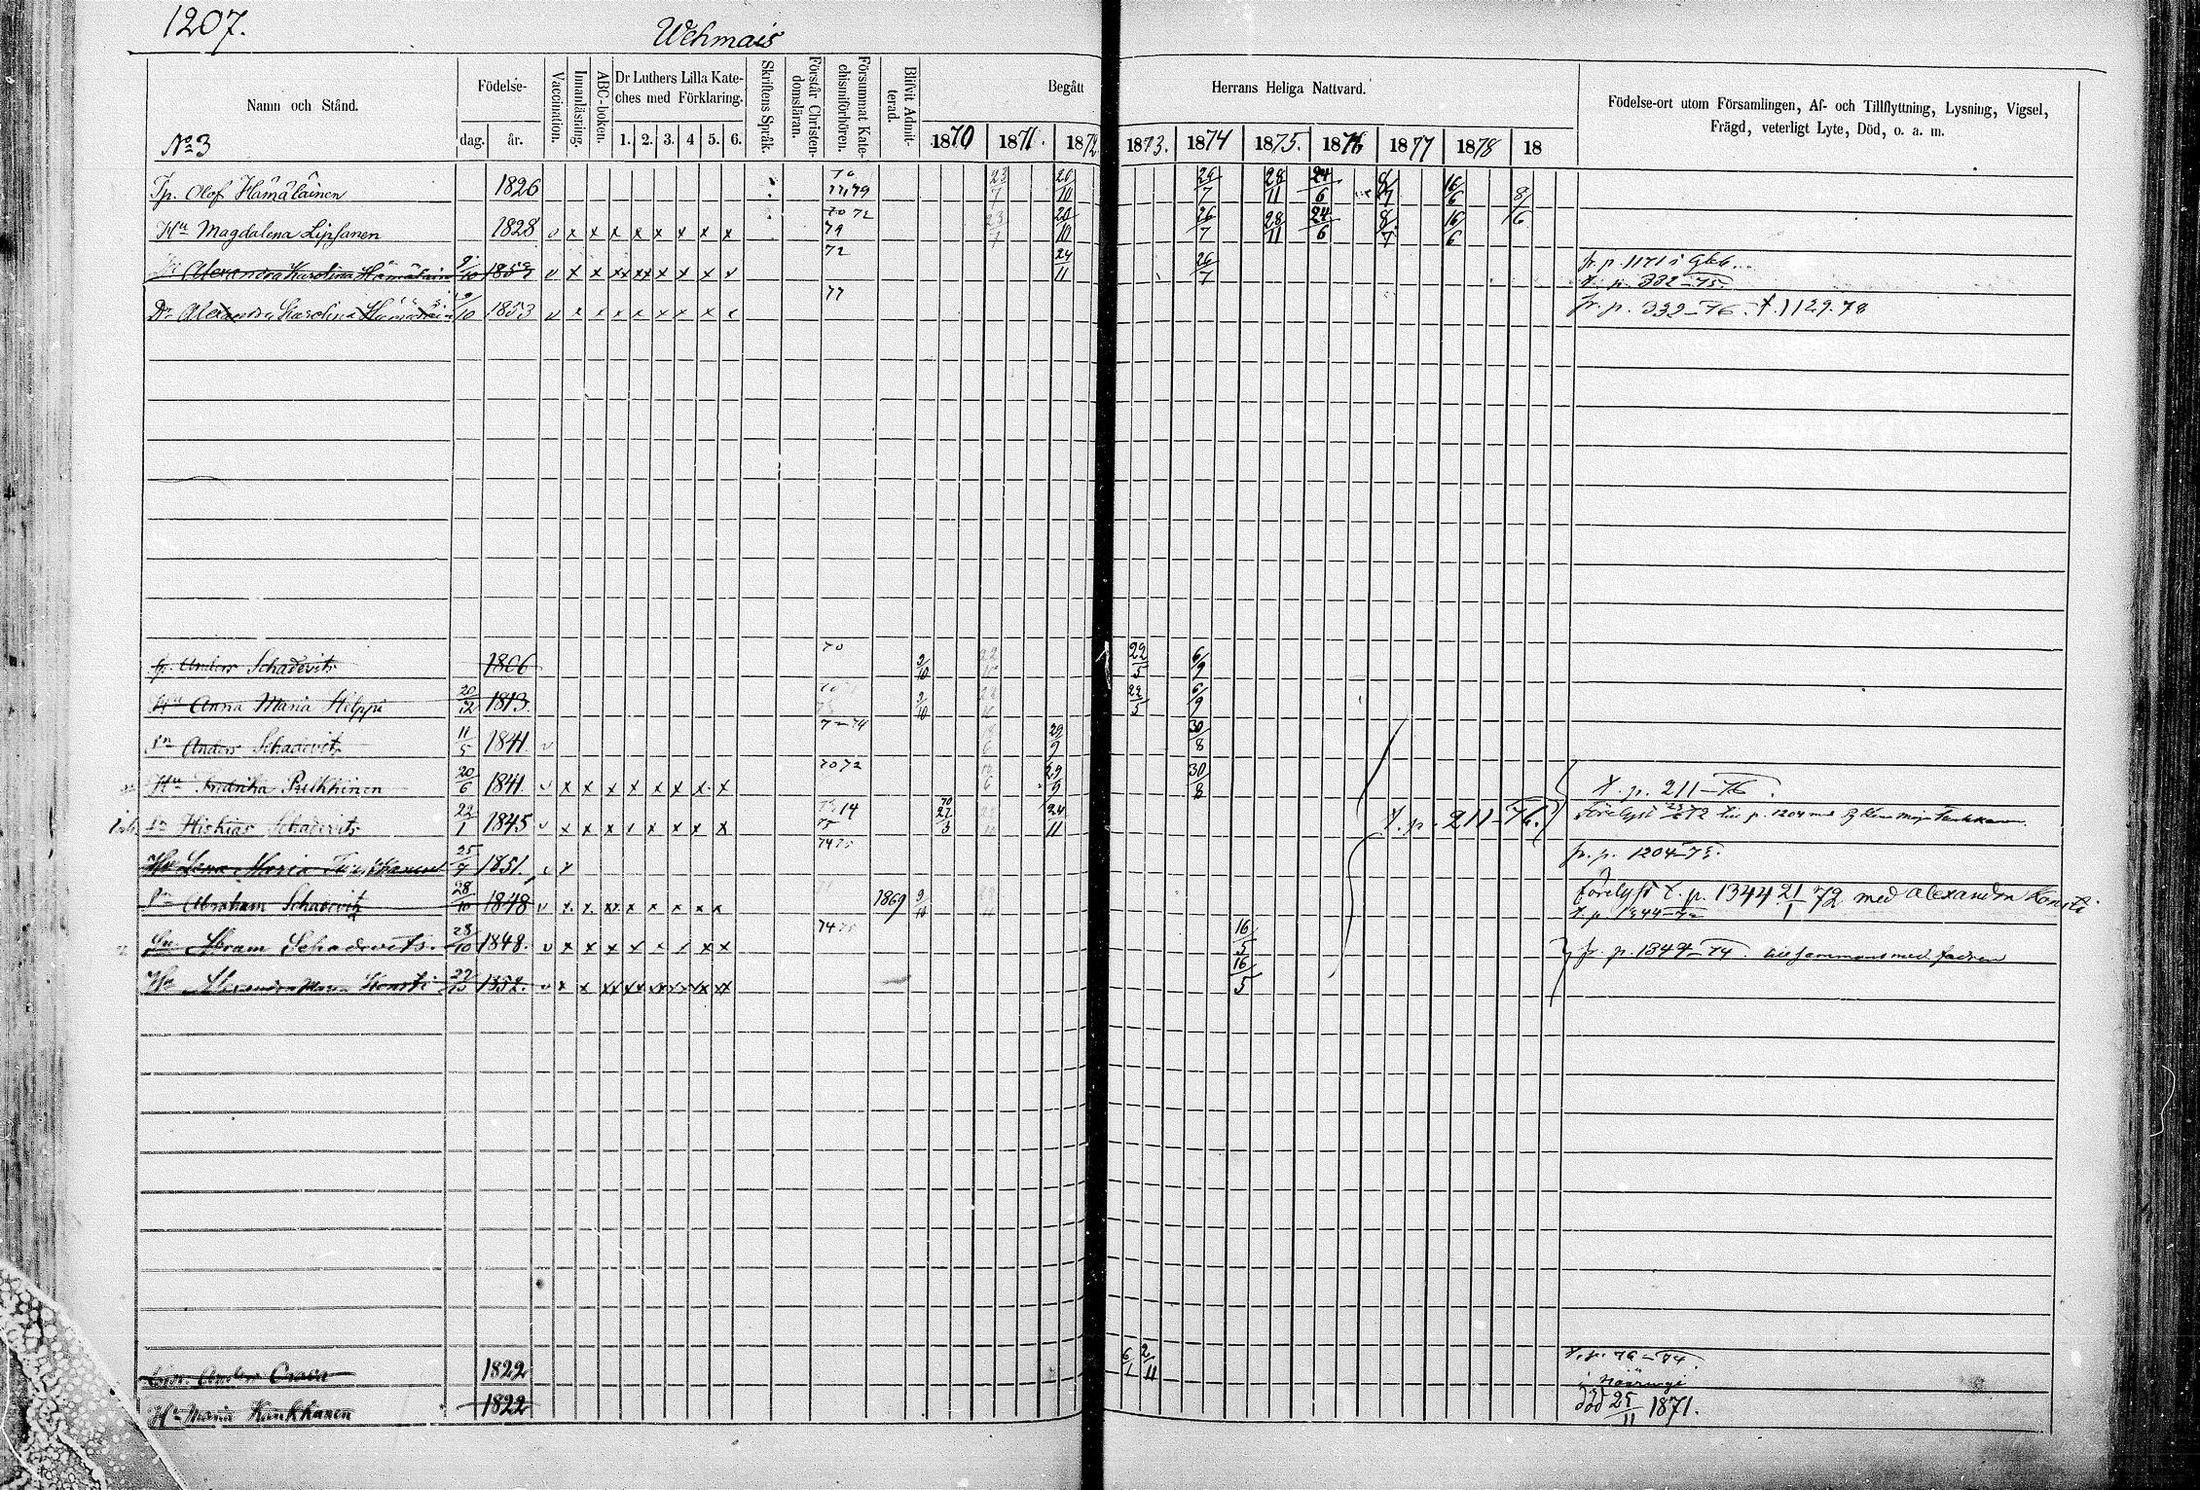 1207.
Wehmais
Namn och Stånd.
Födelse-
dag. år.
Vaccination.
Innanläsning.
ABC-boken.
Dr Luthers Lilla Kate-
ches med Förklaring.
1. 2. 3. 4 5. 6.
Skriftens Språk.
Förstår Christen-
domsläran.
Försummat Kate-
chismiförhören.
Blifvit Admit-
terad.
Begått Herrans Heliga Nattvard.
1870 1871. 1872 1873. 1874 1875. 1876 1877 1878 18
Födelse-ort utom Församlingen, Af- och Tillflyttning, Lysning, Vigsel,
Frägd, veterligt Lyte, Död, o. a. m.
No 3
Tp. Olof Hämäläinen 1826 23/7 20/10 26/7 28/11 24/6 8/7 16/6 8/6
Hu Magdalena Lipsanen 1828 v x x x x x x x x 70 72 79 23/7 20/10 26/7 28/11 24/6 8/7 16/6
Alexandra Karolina Hämäläinen v x x xx xx x x x x 72 24/11 26/7 fr. p. 1171 i
t. p. 332-75.
Dr Alexandra Karolina Hämäläinen 9/10 1853 v x x x x x x x x 77 fr. p. 332-76.
Anders Schadevitz 1806 70 9/10 22/5 6/9
Hu Anna Maria Helppi 20/2 1813. 9/10 22/5 6/9
Sn Anders Schadevitz 11/5 1841 v 29/9 30/8
Hu Fredrika Pulkkinen 20/6 1841. v x x x x x x x x 70 72 29/9 30/8 t. p. 211-76.
Sn Hiskias Schadevitz 22/1 1845 v x x x x x x x x 24/11 t. p. 211-76. till p. 1204 med
Hu Lena Maria 25/9 1851. v x 74 75 fr. p. 1204-73.
Sn Abraham Schadevitz 28/10 1848 v x x xx x x x x x 1869 9/10 t. p. 1344 21/1 72 med Alexandra Konsti
t. p. 1344-72
Sn Abram Schadevits. 28/10 1848. v x x x x x x x x 74 75 16/5 fr. p. 1344-74. med fadren
Hu Alexandra Maria Konsti 1852. v x x xx xx xx xx xx xx 16/5
Anders Orava 1822 6/1 2/11 t. p. 76-74.
Hu Maria Kaukkanen 1822 död 25/11 1871.